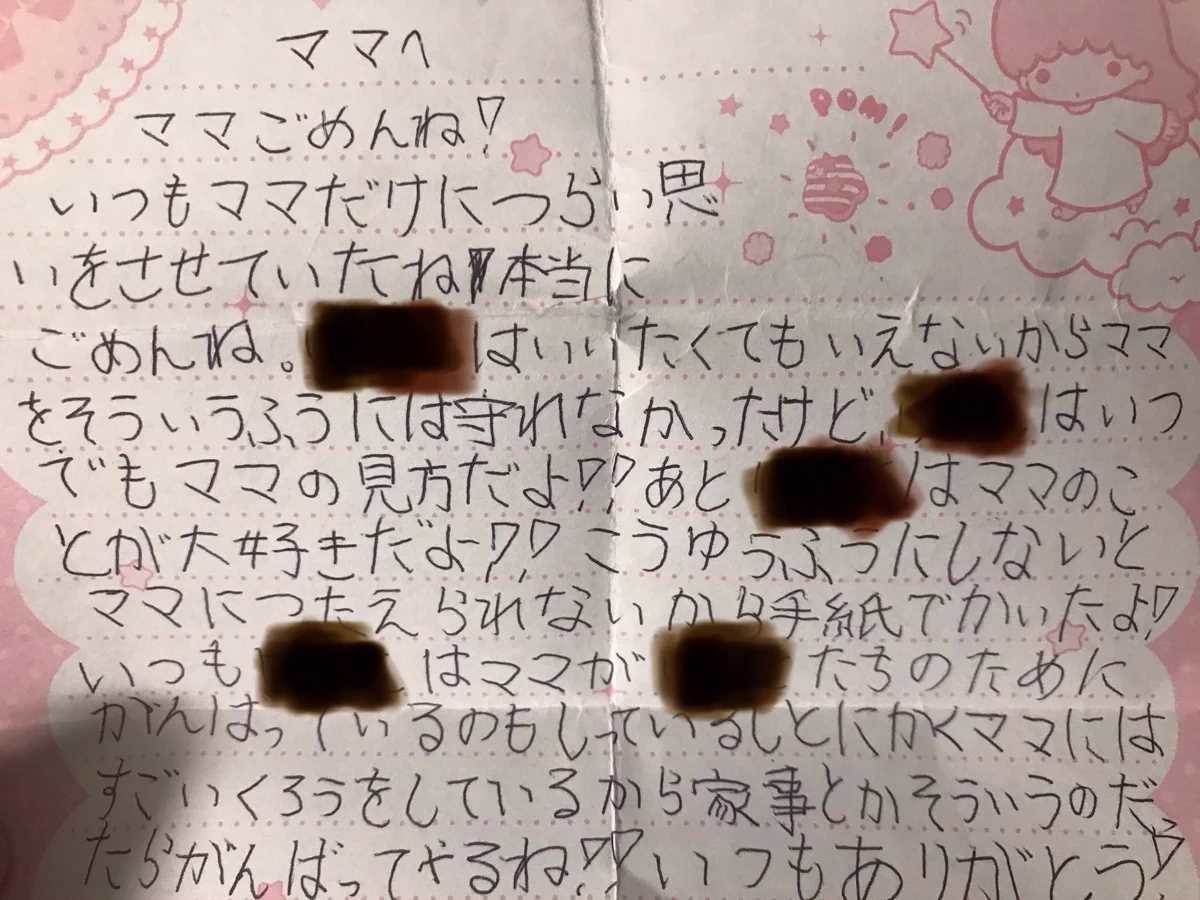 ママへ
ママごめんね!
いつもママだけにつらい思
いをさせていたね本当に
ごめんね。はいいたくてもいえないからママ
をそういうふうには守れなかったけど、はいつ
でもママの見方だよ!!あと はママのこ
とが大好きだよ!!こうゆうふうにしないと
ママにつたえられないから手紙でかいたよ!
いつも はママが たちのために
がんばっているのもしっているしとにかくママには
すごいくろうをしているから家事とかそういうのだっ
たらがんばってやるね!!いつもありがとう!
POM!